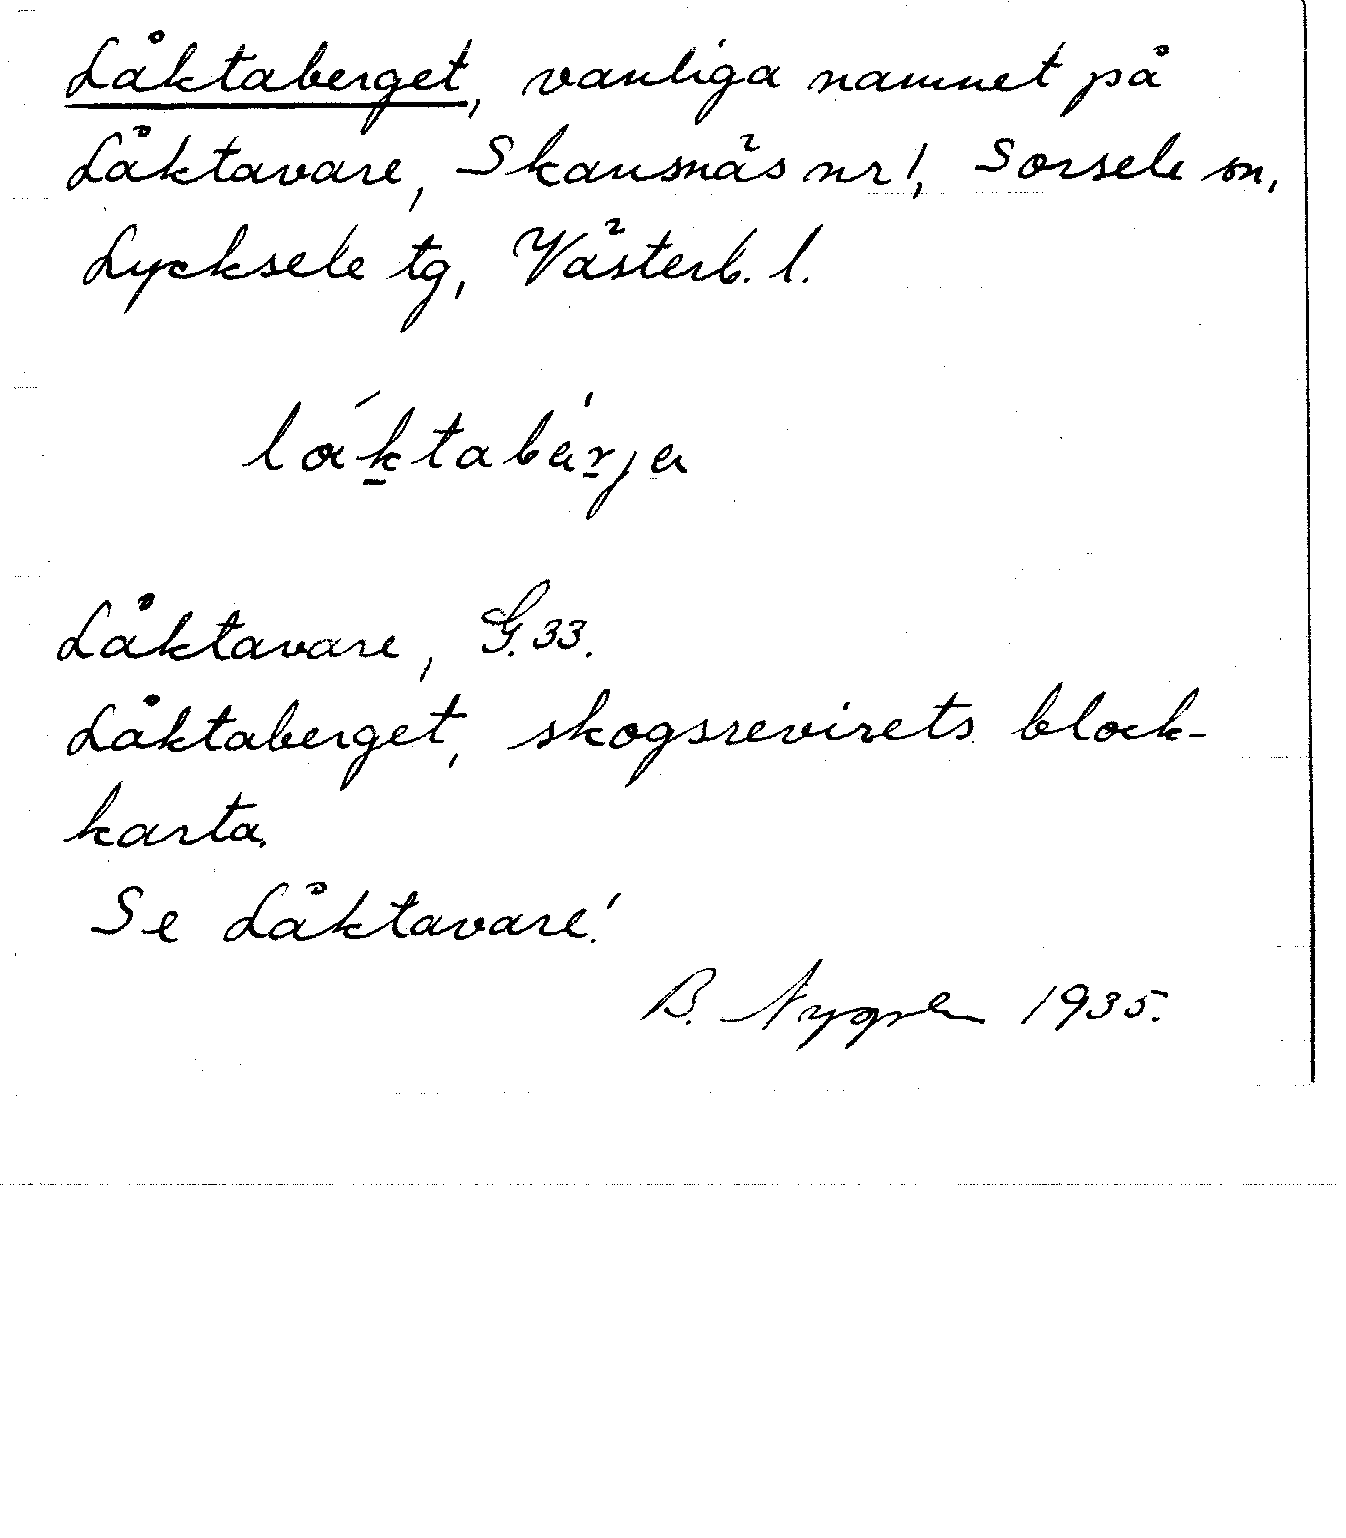 Låktaberget, vanliga namnet på
Låktavare, Skansnäs nr 1, Sorsele sn,
Lycksele tg, Västerb. l.
Låktavare, G. 33.
Låktaberget, skogsrevirets block-
karta.
Se Låktavare!
B. Nygren 1935.